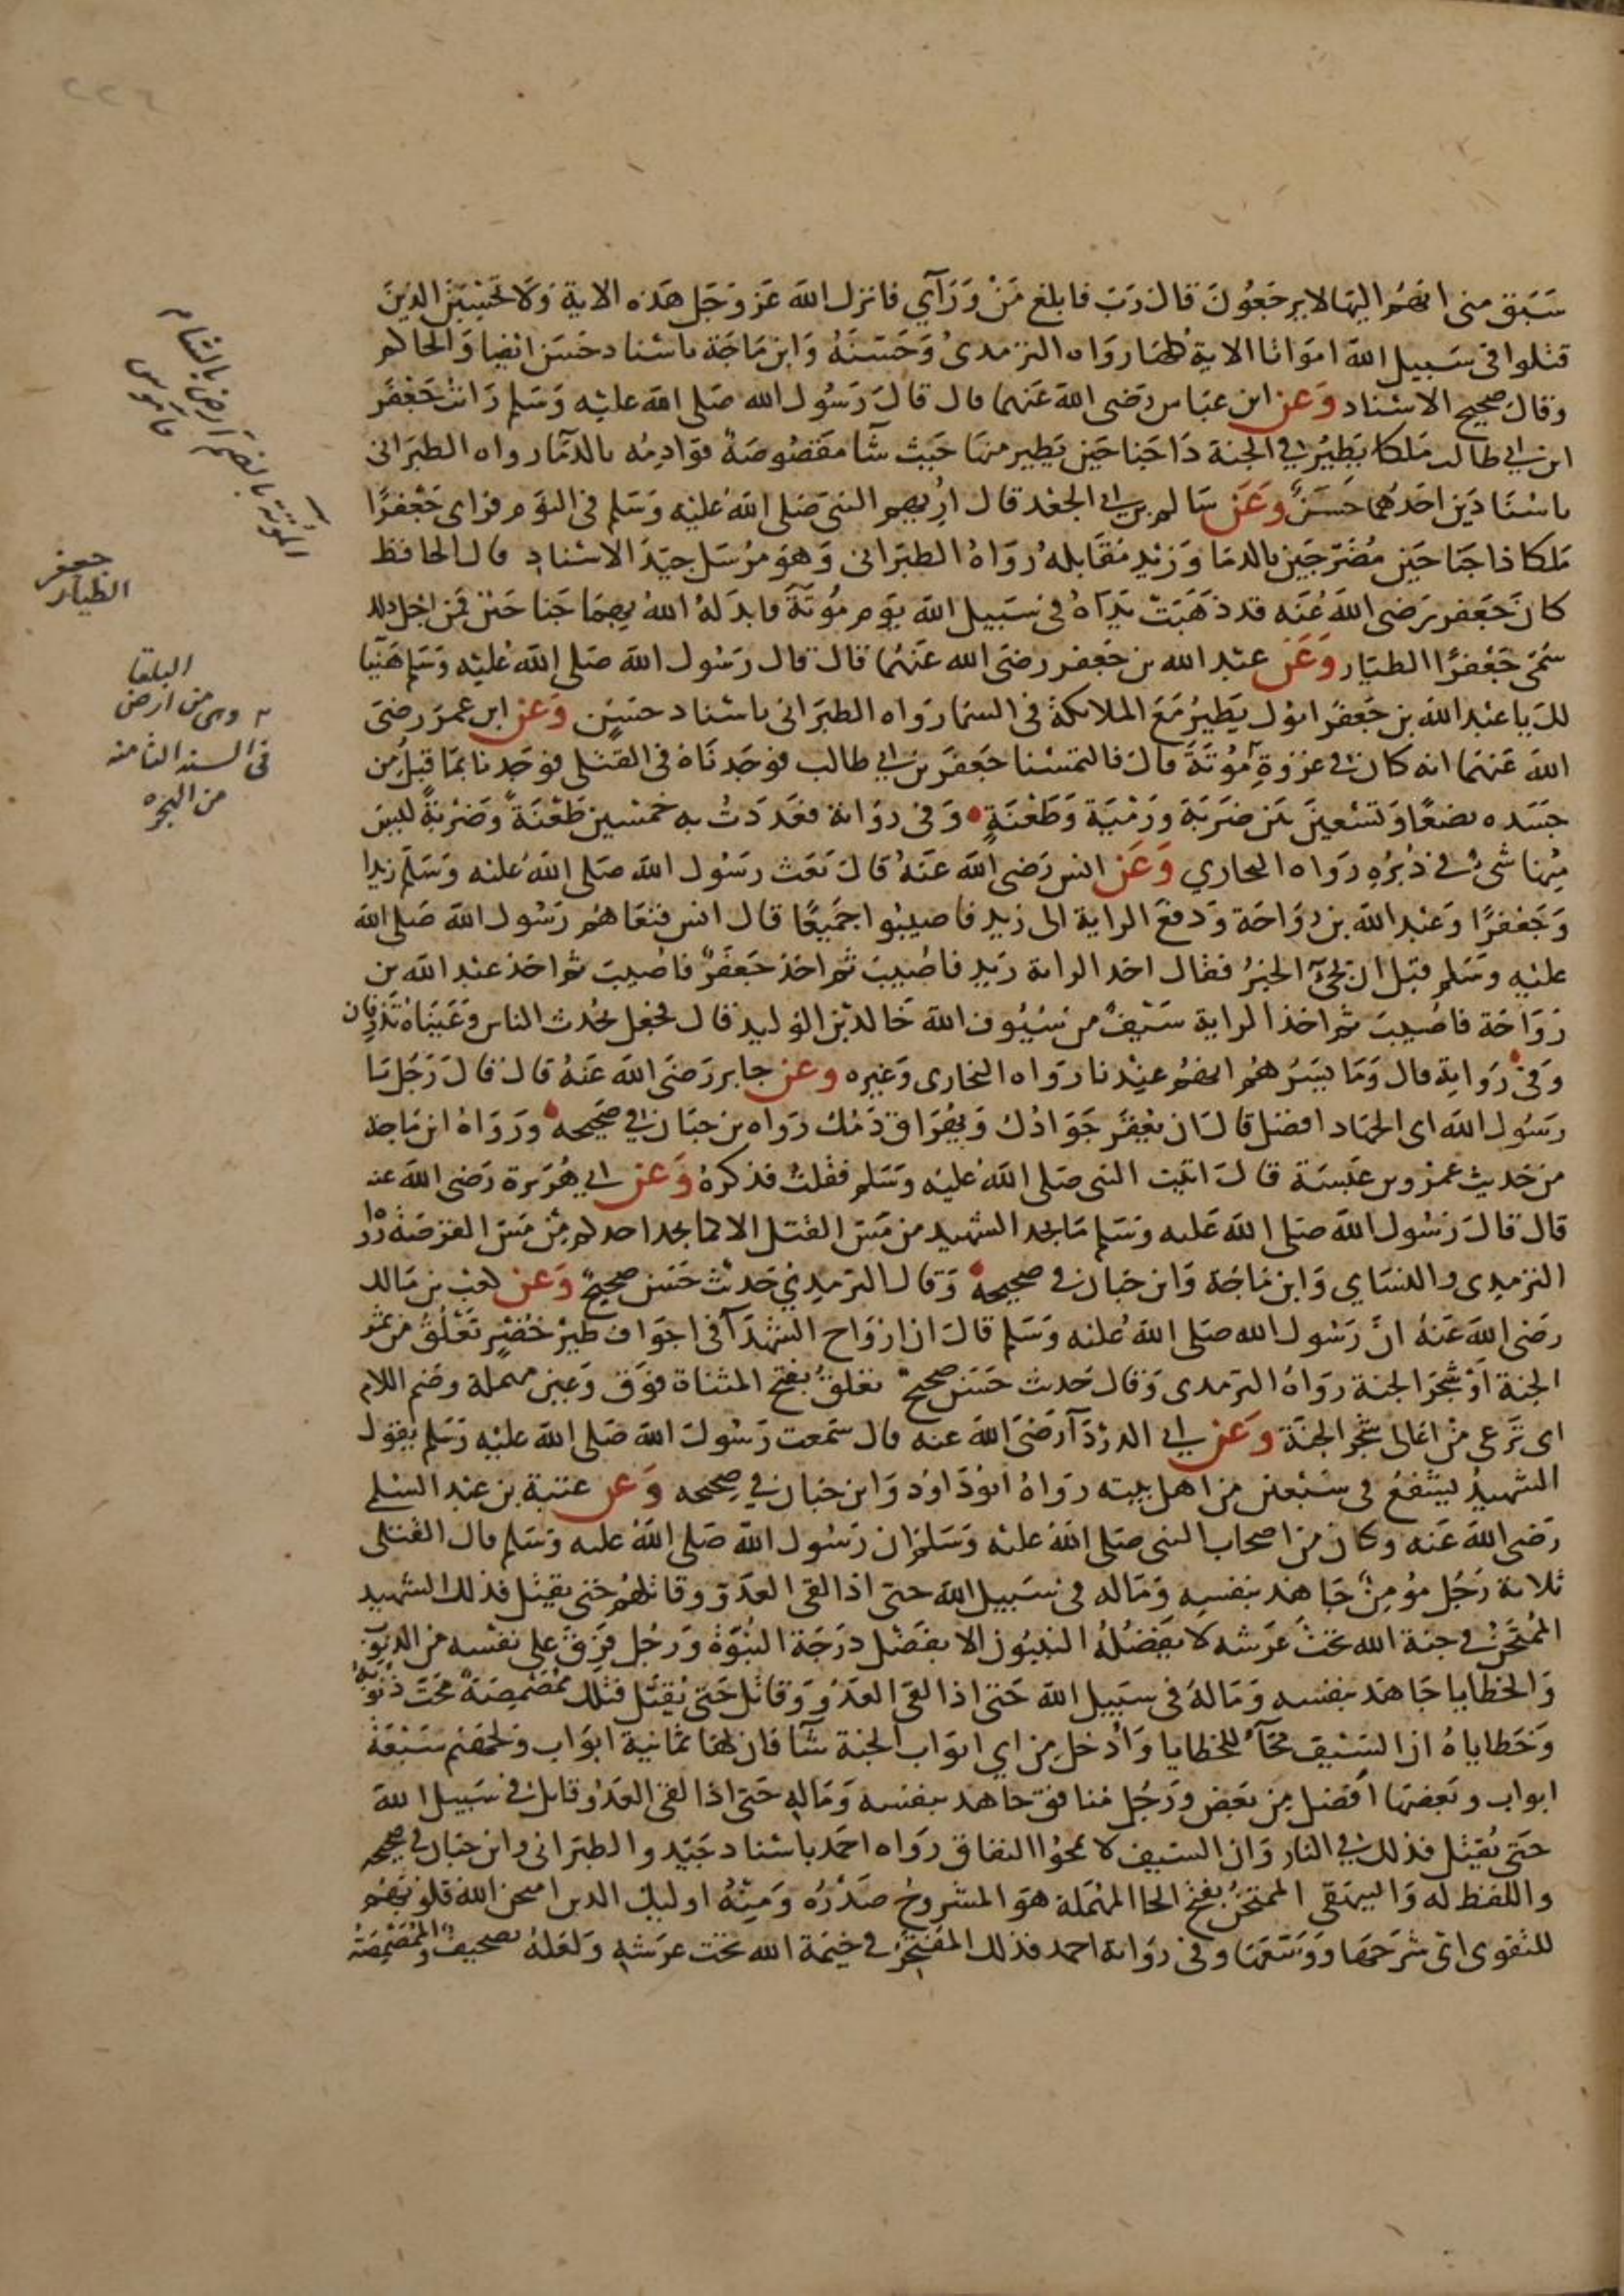 ٢٢٤
سَبَق منى انهُم اليهَا لا يرجَعُونَ قال رَبّ فابلغ مَنْ وَرَآي فانزل الله عَز وَجَل هَذه الاية وَلا تحسَبَنّ الذينَ
قتلوا فى سَبيل الله امواتا الاية كلهَا رَوَاه الترمدى وَحَسّنَهُ وَابن مَاجَة باسناد حَسَن ايضا وَالحاكم
وقال صحيح الاسناد وَعَن ابن عبَاس رَضى الله عَنهما قال قال رَسُول الله صَلى الله عليه وَسَلم رَايت جَعْفَر
ابن ابي طالب مَلكا يَطيرُ في الجنة ذَا جَناحَين يَطير منهَا حَيث شَآ مَقصُوصَةٌ قوَادِمُه بالدمَآ رواه الطبَرانى
باسنَادَين احَدهما حَسَنٌ وَعَن سَالم بن ابي الجعد قال اُريهم النبى صَلى الله عَليه وَسَلم فى النوَم فرَاى جَعْفرًا
مَلكا ذا جَنَاحَين مُضَرجَين بالدمَا وَزيد مُقَابلهُ رَوَاهُ الطبَرانى وَهوَ مُرْسَل جيّد الاسناد قال الحافظ
كانَ جَعَفر رَضى الله عَنه قد ذهَبَت يَدَاهُ فى سَبيل الله يَوم مُوتَةَ فابدَ لَهُ اللهُ بهمَا جَناحَين فمن اجْل ذلك
سُمّى جَعْفرًا الطيار وَعَن عبد الله بن جَعفر رضى الله عَنهُما قال قال رَسُول الله صَلى الله عَليه وَسَلم هَنيًا
لكَ يا عَبْد الله بن جَعفر ابُوك يَطيرُ مَعَ الملايكة فى السمَا رَوَاه الطبَرَانى باسناد حسَنٍ وَعَن ابن عمرَ رضىَ
الله عَنهُما انه كان في غزوةِ مُوتَةَ قال فالتمسْنا جَعفَر بن ابي طالب فوجَدنَاهُ فى القتلى فوَجَدنا بمَا قبل من
جَسَده بضعًا وَتسْعينَ بَين ضرَبَة وَرَمْيَة وَطَعْنَةٍ وَفى رِوَاية فعَدَدتُ به خمَسْين طَعْنَةً وَضَرْبَةً ليسَ
مِنها شَىٌ في دُبُرِهِ رَوَاه البخاري وَعَن انس رَضى الله عَنهُ قالَ بَعَث رَسُول الله صَلى اللهُ عَليه وَسَلّم زيدا
وَجَعْفرًا وَعَبْد الله بن رَوَاحَة وَدفَعَ الراية الى زيدٍ فاصيبُوا جَميعًا قال انس فنعَاهُم رَسُول الله صَلى الله
عليْهِ وَسَلم قبل ان يجىَ الخبرُ فقال اخد الراية زيد فاصُيبَ ثم اخذ جَعفَرٌ فاصُيبَ ثم اخذ عبد الله بن
رَوَاحَة فاصُيبَ ثم اخذ الراية سَيفٌ من سُيُوف الله خَالد بن الوَليد قال فجَعل يحُدث الناس وَعَينَاهُ تذرِفان
وَفى رِوَاية قال وَمَا يَسُرهُم انهُم عِندنا رَوَاه البخارى وَغيره وعن جابر رَضَىَ الله عَنهُ قال قالَ رَجُل يَا
رَسُول الله اى الجهَاد افضَل قالَ ان يُعقَر جَوَادُك وَيهُرَاق دَمُك رَواه بن حبَان في صَحيحه وَرَوَاهُ ابن مَاجَة
من حَديث عمرو بن عَبسَة قالَ اتيت النبى صَلى اللهُ عَليه وَسَلم فقلتُ فذكرهُ وَعَن ابي هُرَيرة رَضى الله عنه
قال قالَ رَسُول الله صَلى الله عَليه وَسَلم مَا يجد الشهيد من مَسّ القتل الا كما يجد احدكم من مَسّ القرصَة رَوَاه
الترمِدى والنسَاي وَابن مَاجَة وَابن حبَان فى صحيحه وَقال الترمِدي حَديث حَسَن صحيحٌ وَعَن كعب بن مَالك
رَضى الله عَنهُ انّ رَسُول الله صَلى اللهُ عَليه وَسَلم قالَ ان ارْوَاح الشهَدَآ فى اجوَاف طَيْر خُضْرٍ تَعْلُقُ من ثمر
الجنة اوْ شَجَر الجنة رَوَاهُ الترمدى وَقال حَديث حَسَن صحيحٌ تعلقُ بفتح المثناة فوَق وَعين مهملة وضَم اللام
اى تَرعى من اعَالى شجَر الجَنّة وَعَن ابي الدردَآ رَضَىَ الله عنه قال سَمعت رَسُولَ الله صَلى الله عليْه وَسَلم يقول
الشهيدُ يَشْفَعُ فى سَبْعين من اهل بيته رَوَاهُ ابُو دَاوُد وَابن حبَان في صِحيحه وَعن عتبة بن عَبْد السُلمى
رَضى الله عَنه وكان من اصحاب النبى صَلى اللهُ عليْه وَسَلم ان رَسُول الله صَلى اللهُ عليه وَسَلم قال القتلى
ثلاثة رَجُل مُؤمِنٌ جَاهَد بنفسِهِ وَمَاله فى سَبيل الله حتى اذا لقى العدَوّ وقاتلهُم حَتى يقتَل فذلك الشهيد
المُمْتحَنُ في جنة الله تحتَ عَرشه لا يَفضُلُهُ النبيُون الا بفَضْل دَرَجَة النُبُوَة وَرَجُل فَرِق على نفسْه من الذنوبَ
وَالخطايا جَاهَد بنفسه وَمَالهُ فى سَبيل الله حَتى اذا لقىَ العَدُو وَقاتل حَتىّ يُقتَل فتلكَ مُمَصْمِصَةٌ محَتْ ذنُوبَهُ
وَخَطاياهُ ان السَيْفَ محَآءٌ للخطايا وَادُخل مِن اي ابوَاب الجنة شآ فان لهَا ثمَانية ابوَاب وَلجهَنم سَبْعَة
ابواب وَبَعضهَا افضَل مِن بَعض وَرَجُل مُنافق جَاهَد بنفسه وَمَاله حَتى اذا لقى العَدُو وَقاتل في سَبيل الله
حَتى يُقتَل فذلك في النار وَان السَيف لا يمحُوا النفاق رَوَاه احمَد باسْناد جَيّد والطبَرَانى وابن حبان في صحيحه
واللفظ له وَالبيهَقى الممتَحَنُ بفتح الحا المهْمَلة هوَ المشرُوحُ صَدْرُه وَمِنْهُ اوليك الدين امتحن الله قلوبَهُم
للتقوى اى شَرَحهَا وَوَسَّعهَا وفى رِوَاية احمد فذلك المُفْتَخَر في خيْمَة الله تحْت عَرشهِ وَلعَلهُ تصحيفٌ والمُمَصْمِصَةُ
الموتة بالضم ارض بالشام
قاموس
جعفر
الطيار
البلقا
وهى من ارض
فى السنه الثامنه
من الهجره